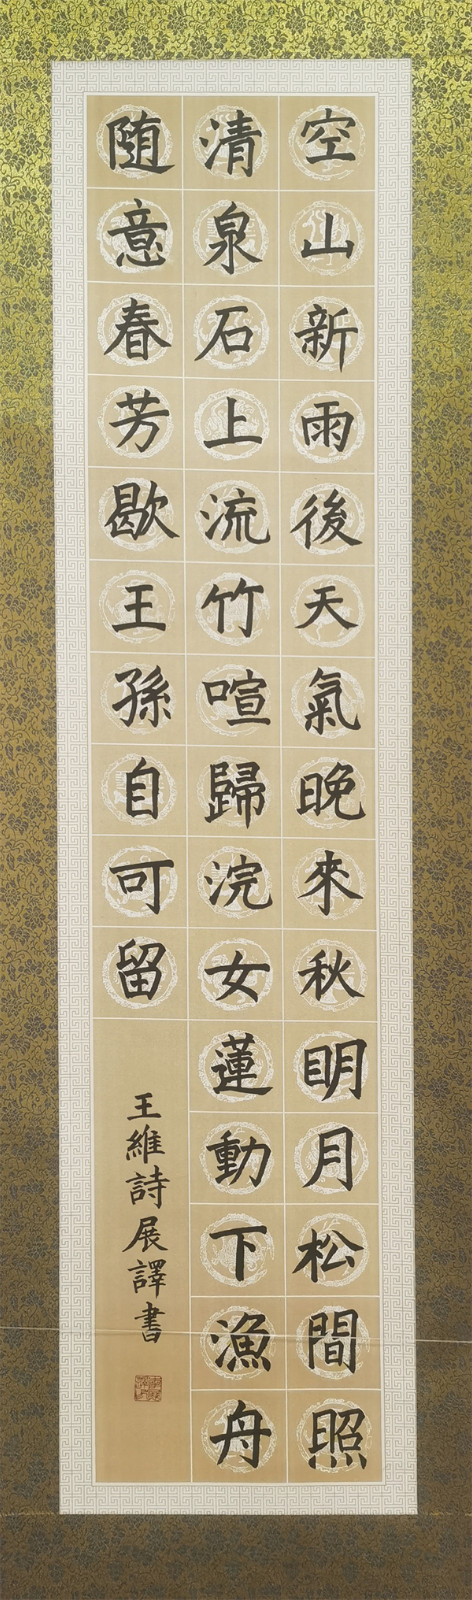 空山新雨後天氣晚來秋明月松間照
清泉石上流竹喧歸浣女蓮動下漁舟
随意春芳歇王孫自可留
王維詩展譯書